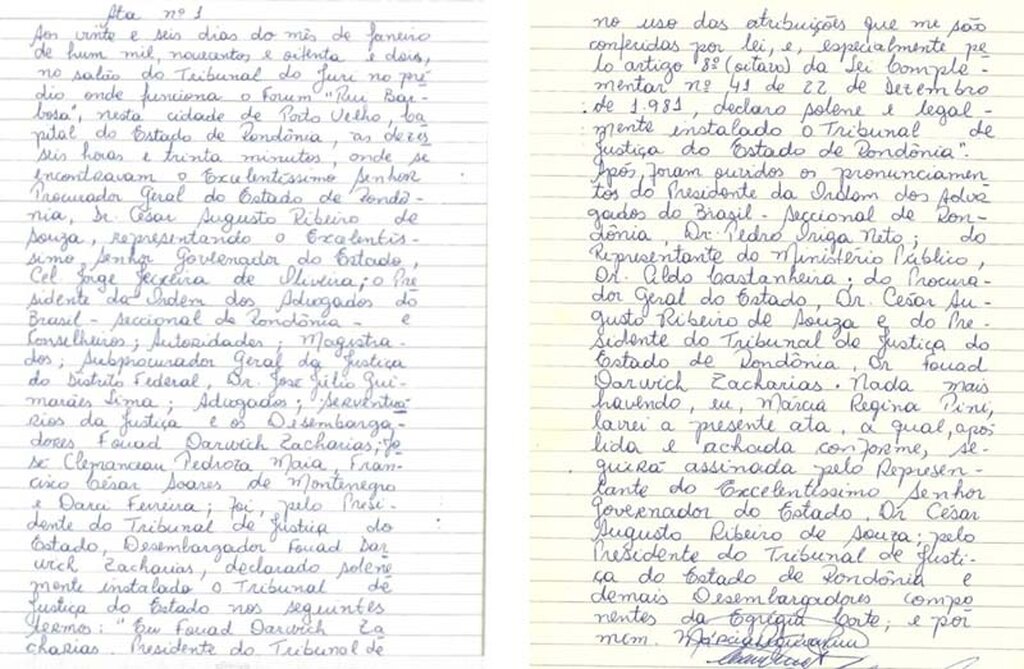 Ata nº 1
Aos vinte e seis dias do mês de janeiro
de hum mil, novecentos e oitenta e dois,
no salão do Tribunal do Juri no pré-
dio onde funciona o Forum "Rui Bar-
bosa", nesta cidade de Porto Velho, Ca-
pital do Estado de Rondônia, as dezes
seis horas e trinta minutos, onde se
encontravam o Excelentíssimo Senhor
Procurador Geral do Estado de Rondô-
nia, Dr. César Augusto Ribeiro de
Souza, representando o Excelentís-
simo Senhor Governador do Estado,
Cel. Jorge Teixeira de Oliveira; o Pre
sidente da Ordem dos Advogados do
Brasil - Seccional de Rondônia - e
Conselheiros; Autoridades; Magistra-
dos; Subprocurador Geral da Justiça
do Distrito Federal, Dr. José Júlio Gui-
marães Lima; Advogados; Serventuá
rios da Justiça e os Desembarga-
dores Fouad Darwich Zacharias, Jo-
sé Clemanceau Pedroza Maia, Fran-
cisco César Soares de Montenegro
e Darci Ferreira; foi, pelo Presi-
dente do Tribunal de Justiça do
Estado, Desembargador Fouad Dar
wich Zacharias, declarado solene
mente instalado o Tribunal de
Justiça do Estado nos seguintes
termos: "Eu Fouad Darwich Za
charias, Presidente do Tribunal de
no uso das atribuições que me são
conferidas por lei, e, especialmente pe-
lo artigo 8º (oitavo) da Lei Comple-
mentar nº 41 de 22 de Dezembro
de 1.981, declaro solene e legal-
mente instalado o Tribunal de
Justiça do Estado de Rondônia".
Após, foram ouvidos os pronunciamen-
tos do Presidente da Ordem dos Advo
gados do Brasil - Seccional de Ron-
dônia, Dr. Pedro Origa Neto; do
Representante do Ministério Público,
Dr. Aldo Castanheira; do Procura-
dor Geral do Estado, Dr. César Au-
gusto Ribeiro de Souza e do Pre-
sidente do Tribunal de Justiça do
Estado de Rondônia, Dr Fouad
Darwich Zacharias. Nada mais
havendo, eu, Márcia Regina Pini,
lavrei a presente ata, a qual, após
lida e achada conforme, se-
guirá assinada pelo Represen-
tante do Excelentíssimo Senhor
Governador do Estado, Dr César
Augusto Ribeiro de Souza; pelo
Presidente do Tribunal de Justi-
ça do Estado de Rondônia e
demais Desembargadores compo-
nentes da Egrégia Corte; e por
mim.